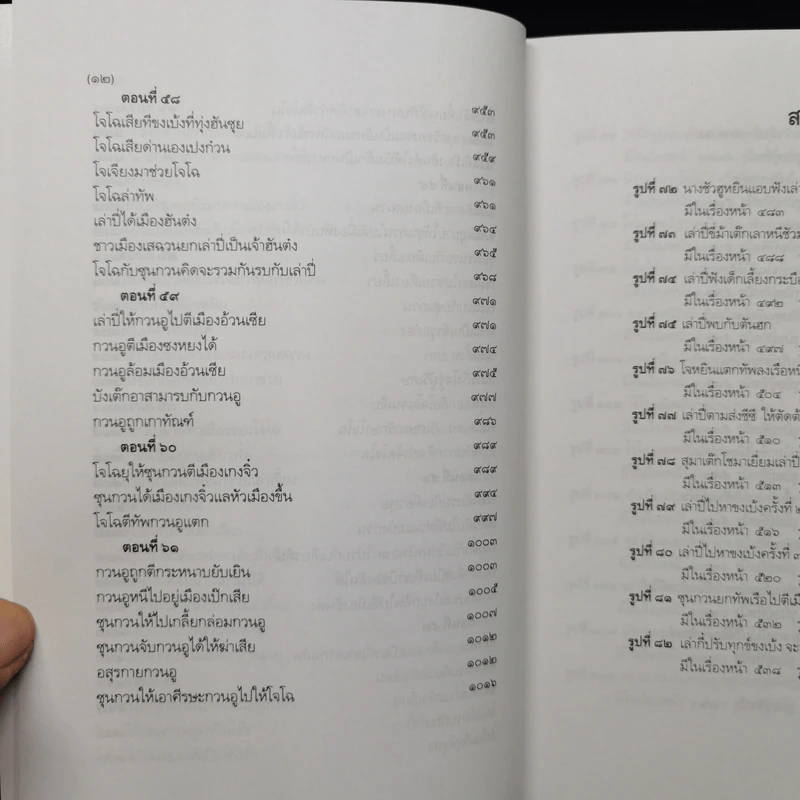 (๑๒)
ตอนที่ ๕๘ ๙๕๓
โจโฉเสียทีขงเบ้งที่ทุ่งฮันซุย ๙๕๓
โจโฉเสียด่านเองเปงก๋วน ๙๕๙
โจเจียงมาช่วยโจโฉ ๙๖๑
โจโฉล่าทัพ ๙๖๑
เล่าปี่ได้เมืองฮันต๋ง ๙๖๔
ชาวเมืองเสฉวนยกเล่าปี่เป็นเจ้าฮันต๋ง ๙๖๕
โจโฉกับซุนกวนคิดจะรวมกันรบกับเล่าปี่ ๙๖๘
ตอนที่ ๕๙ ๙๗๑
เล่าปี่ให้กวนอูไปตีเมืองอ้วนเซีย ๙๗๑
กวนอูตีเมืองซงหยงได้ ๙๗๔
กวนอูล้อมเมืองอ้วนเซีย ๙๗๕
บังเต๊กอาสามารบกับกวนอู ๙๗๗
กวนอูถูกเกาทัณฑ์ ๙๘๖
ตอนที่ ๖๐ ๙๘๙
โจโฉยุให้ซุนกวนตีเมืองเกงจิ๋ว ๙๘๙
ซุนกวนได้เมืองเกงจิ๋วแลหัวเมืองขึ้น ๙๙๔
โจโฉตีทัพกวนอูแตก ๙๙๗
ตอนที่ ๖๑ ๑๐๐๓
กวนอูถูกตีกระหนาบยับเยิน ๑๐๐๓
กวนอูหนีไปอยู่เมืองเป๊กเสีย ๑๐๐๕
ซุนกวนให้ไปเกลี้ยกล่อมกวนอู ๑๐๐๗
ซุนกวนจับกวนอูได้ให้ฆ่าเสีย ๑๐๑๒
อสุรกายกวนอู ๑๐๑๒
ซุนกวนให้เอาศีรษะกวนอูไปให้โจโฉ ๑๐๑๖
รูปที่ ๗๒ นางชัวฮูหยินแอบฟังเล่า
มีในเรื่องหน้า ๔๘๓
รูปที่ ๗๓ เล่าปี่ขี่ม้าเต๊กเลาหนีชัวม
มีในเรื่องหน้า ๔๘๘
รูปที่ ๗๔ เล่าปี่ฟังเด็กเลี้ยงกระบือ
มีในเรื่องหน้า ๔๙๒
รูปที่ ๗๕ เล่าปี่พบกับตันฮก
มีในเรื่องหน้า ๔๙๗
รูปที่ ๗๖ โจหยินแตกทัพลงเรือหนี
มีในเรื่องหน้า ๕๐๔
รูปที่ ๗๗ เล่าปี่ตามส่งชีซี ให้ตัดต้
มีในเรื่องหน้า ๕๑๐
รูปที่ ๗๘ สุมาเต๊กโชมาเยี่ยมเล่าปี่
มีในเรื่องหน้า ๕๑๓
รูปที่ ๗๙ เล่าปี่ไปหาขงเบ้งครั้งที่ ๒
มีในเรื่องหน้า ๕๑๖
รูปที่ ๘๐ เล่าปี่ไปหาขงเบ้งครั้งที่ ๓
มีในเรื่องหน้า ๕๒๐
รูปที่ ๘๑ ซุนกวนยกทัพเรือไปตีเมื
มีในเรื่องหน้า ๕๓๒
รูปที่ ๘๒ เล่ากี๋ปรับทุกข์ขงเบ้ง จะ
มีในเรื่องหน้า ๕๓๘